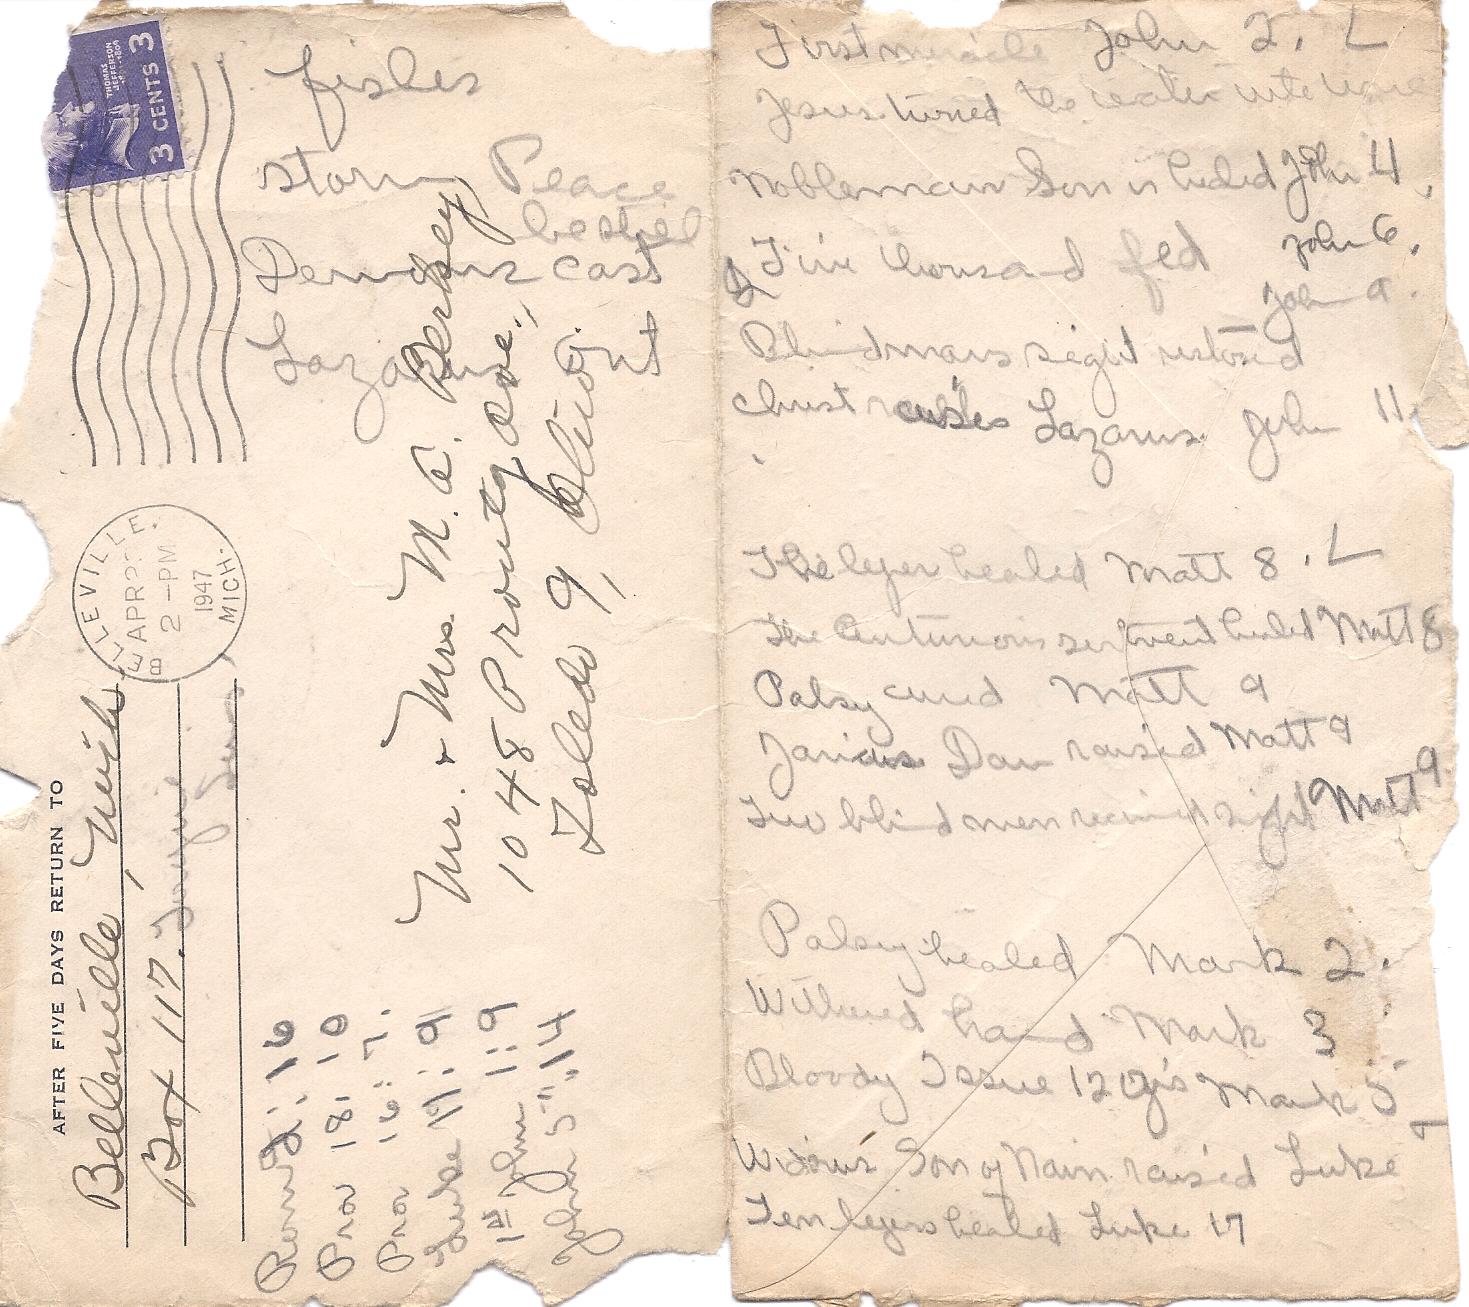 THOMAS
JEFFERSON
1801-1809
3 CENTS 3
BELLEVILLE.
APR 2
2-PM
1947
MICH.
AFTER FIVE DAYS RETURN TO
Belleville, Mich
Box 117.
Mr. & Mrs. M. C. Bersey
1048 Prouty Ave.,
Toledo 9, Ohio.
fishes
storm Peace
be still
Demons cast
Lazarus out
Rom 2:16
Prov 18:10
Prov 16:7.
Luke 17:
1st John 1:9
John 5:14
First miracle John 2. L
Jesus turned the water into wine
Nobleman Son is healed John 4.
Five thousand fed John 6.
John 9.
Blindmans sight restored
Christ raises Lazarus John 11.
The leper healed Matt 8. L
The Centurions servent healed Matt 8
Palsy cured Matt 9
Jarius Dau raised Matt 9
Two blind men receives sight Matt 9
Palsy healed Mark 2.
Withered hand Mark 3
Bloody Issue 12 yrs Mark 5
Widows Son of Nain raised Luke 7
Ten lepers healed Luke 17